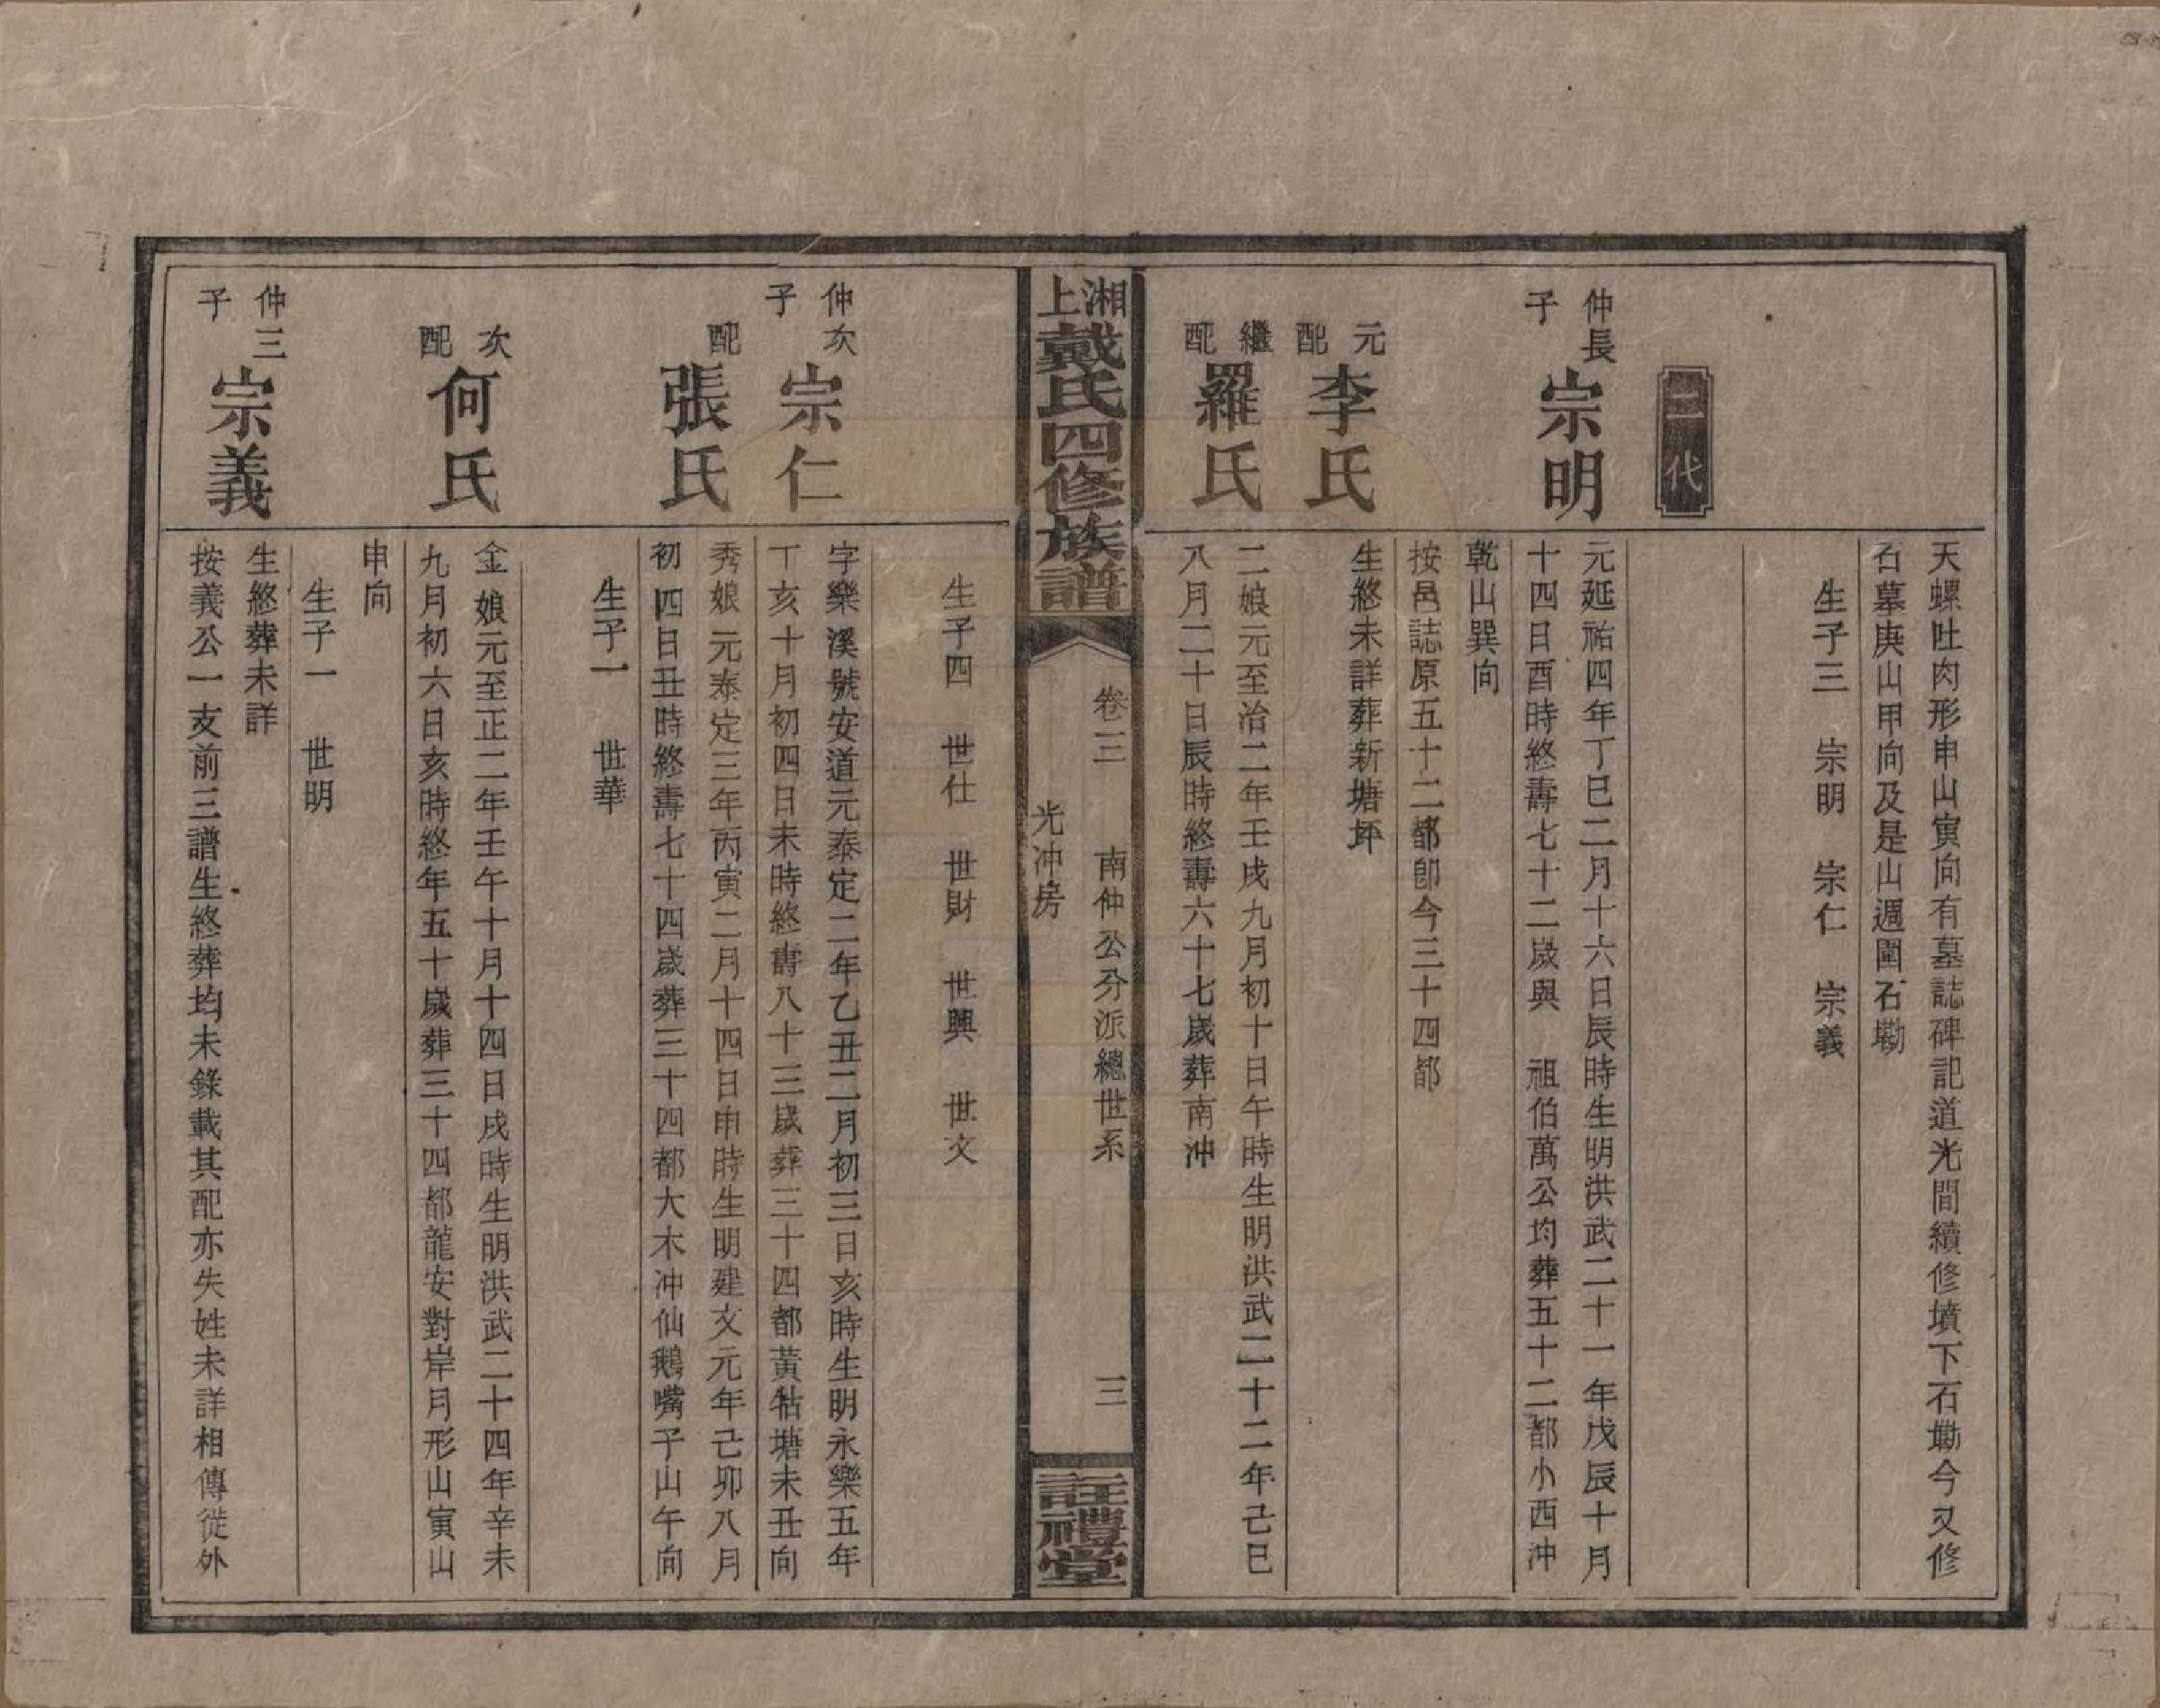 天螺吐肉形申山寅向有墓誌碑記道光間續修墳下石墈今又修
石墓庚山甲向及是山週圍石墈
生子三　宗明　宗仁　宗義
二代
仲長子
宗明
元延祐四年丁巳二月十六日辰時生明洪武二十一年戊辰十月
十四日酉時終壽七十二歲與　祖伯萬公均葬五十二都小西冲
乾山巽向
按邑誌原五十二都卽今三十四都
元配
李氏
生終未詳葬新塘坪
繼配
羅氏
二娘元至治二年壬戌九月初十日午時生明洪武二十二年己巳
八月二十日辰時終壽六十七歲葬南冲
湘上戴氏四修族譜
卷三　南仲公分派總世系　三
光冲房
註禮堂
生子四　世仕　世財　世興　世文
仲次子
宗仁
字樂溪號安道元泰定二年乙丑二月初三日亥時生明永樂五年
丁亥十月初四日未時終壽八十三歲葬三十四都黃牯塘未丑向
配
張氏
秀娘元泰定三年丙寅二月十四日申時生明建文元年己卯八月
初四日丑時終壽七十四歲葬三十四都大木冲仙鵝嘴子山午向
生子一　世華
次配
何氏
金娘元至正二年壬午十月十四日戌時生明洪武二十四年辛未
九月初六日亥時終年五十歲葬三十四都龍安對岸月形山寅山
申向
生子一　世明
仲三子
宗義
生終葬未詳
按義公一支前三譜生終葬均未錄載其配亦失姓未詳相傳徙外